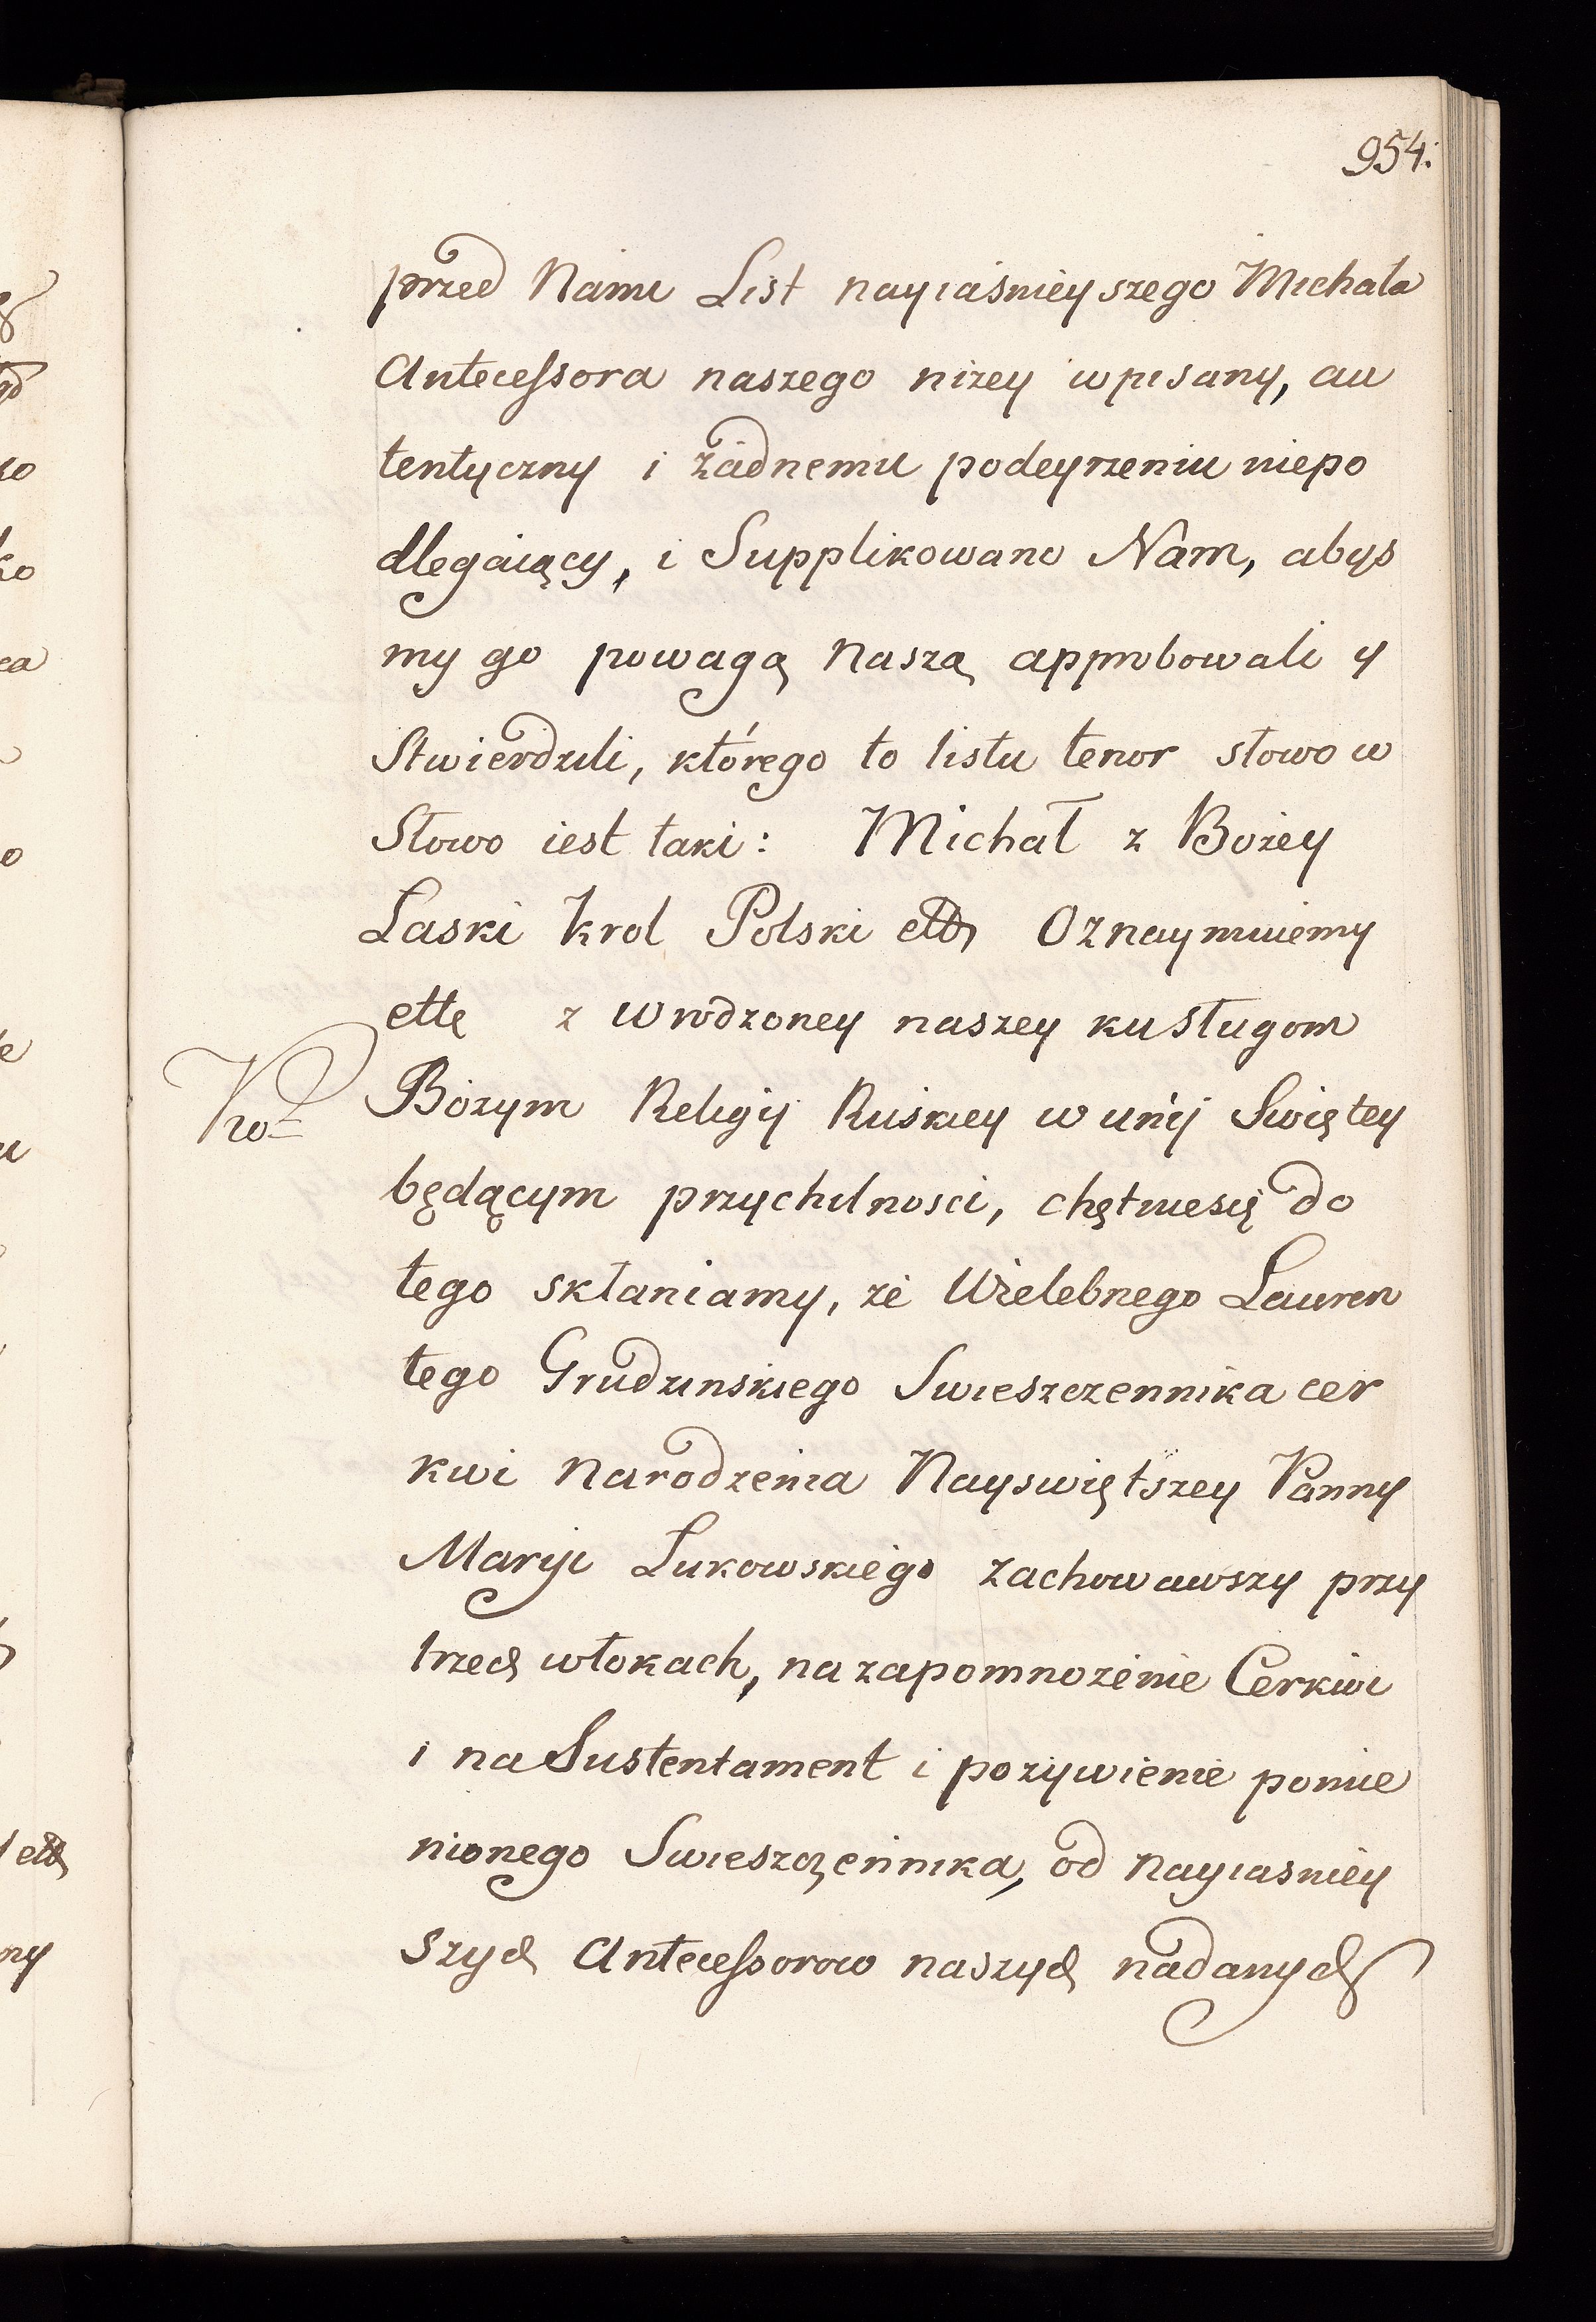 954.
przed Nami List nayiaśnieyszego Michała
Antecessora naszego niżey wpisany, au
tentyczny i żadnemu podeyrzeniu niepo
dlegaiący, i Supplikowano Nam, abys
my go powagą Naszą approbowali y
Stwierdzili, którego to listu tenor słowo w
Słowo iest taki: Michał z Bożey
Łaski krol Polski etc Oznaymuiemy
ettę z wrodzoney naszey ku sługom
Bożym Religij Ruskiey w unij Swiętey
będącym przychilnosci, chętniesię do
tego skłaniamy, że Wielebnego Lauren
tego Grudzinskiego Swieszczennika cer
kwi Narodzenia Nayswiętszey Panny
Maryi Łukowskiego zachowawszy przy
trzech włokach, na zapomnożenie Cerkwi
i na Sustentament i pożywienie pomie
nionego Swieszczennika, od Nayiasniey
szych Antecessorow naszych nadanych